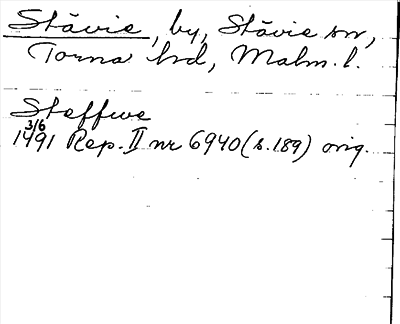 Stävie, by, Stävie sn,
Torna hd, Malm. l.
Staffwe
3/6
1491 Rep. II nr 6940 (s. 189) orig.